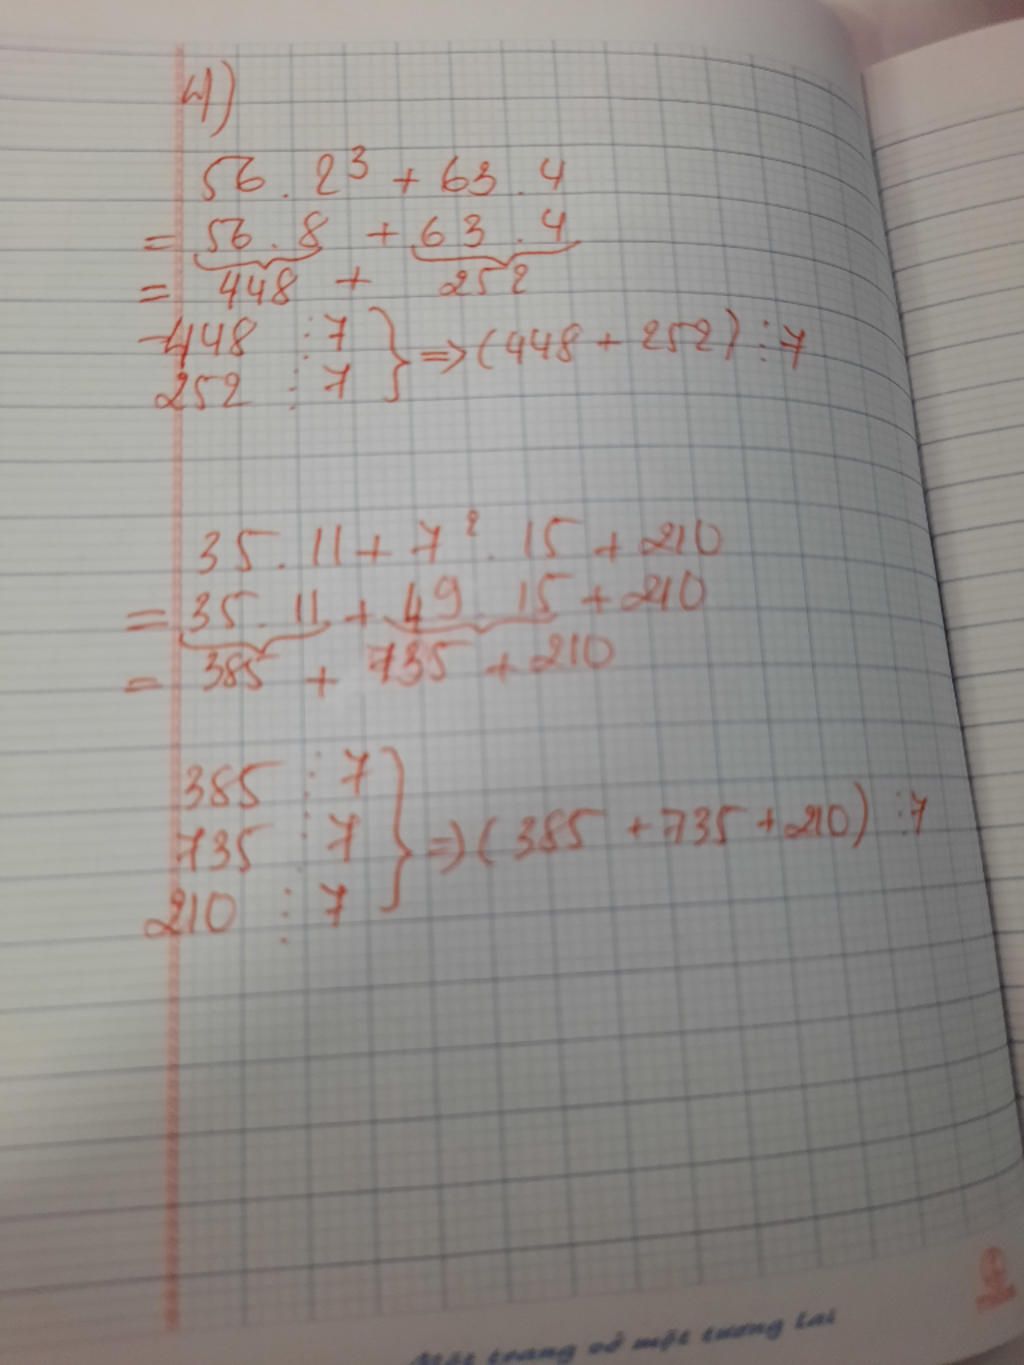 4)
56 . 2³ + 63 . 4
= 56 . 8 + 63 . 4
= 448 + 252
448 ⋮ 7
252 ⋮ 7 } => (448 + 252) ⋮ 7
35 . 11 + 7² . 15 + 210
= 35 . 11 + 49 . 15 + 210
= 385 + 735 + 210
385 ⋮ 7
735 ⋮ 7 } => (385 + 735 + 210) ⋮ 7
210 ⋮ 7
Mỗi trang vở một tương lai